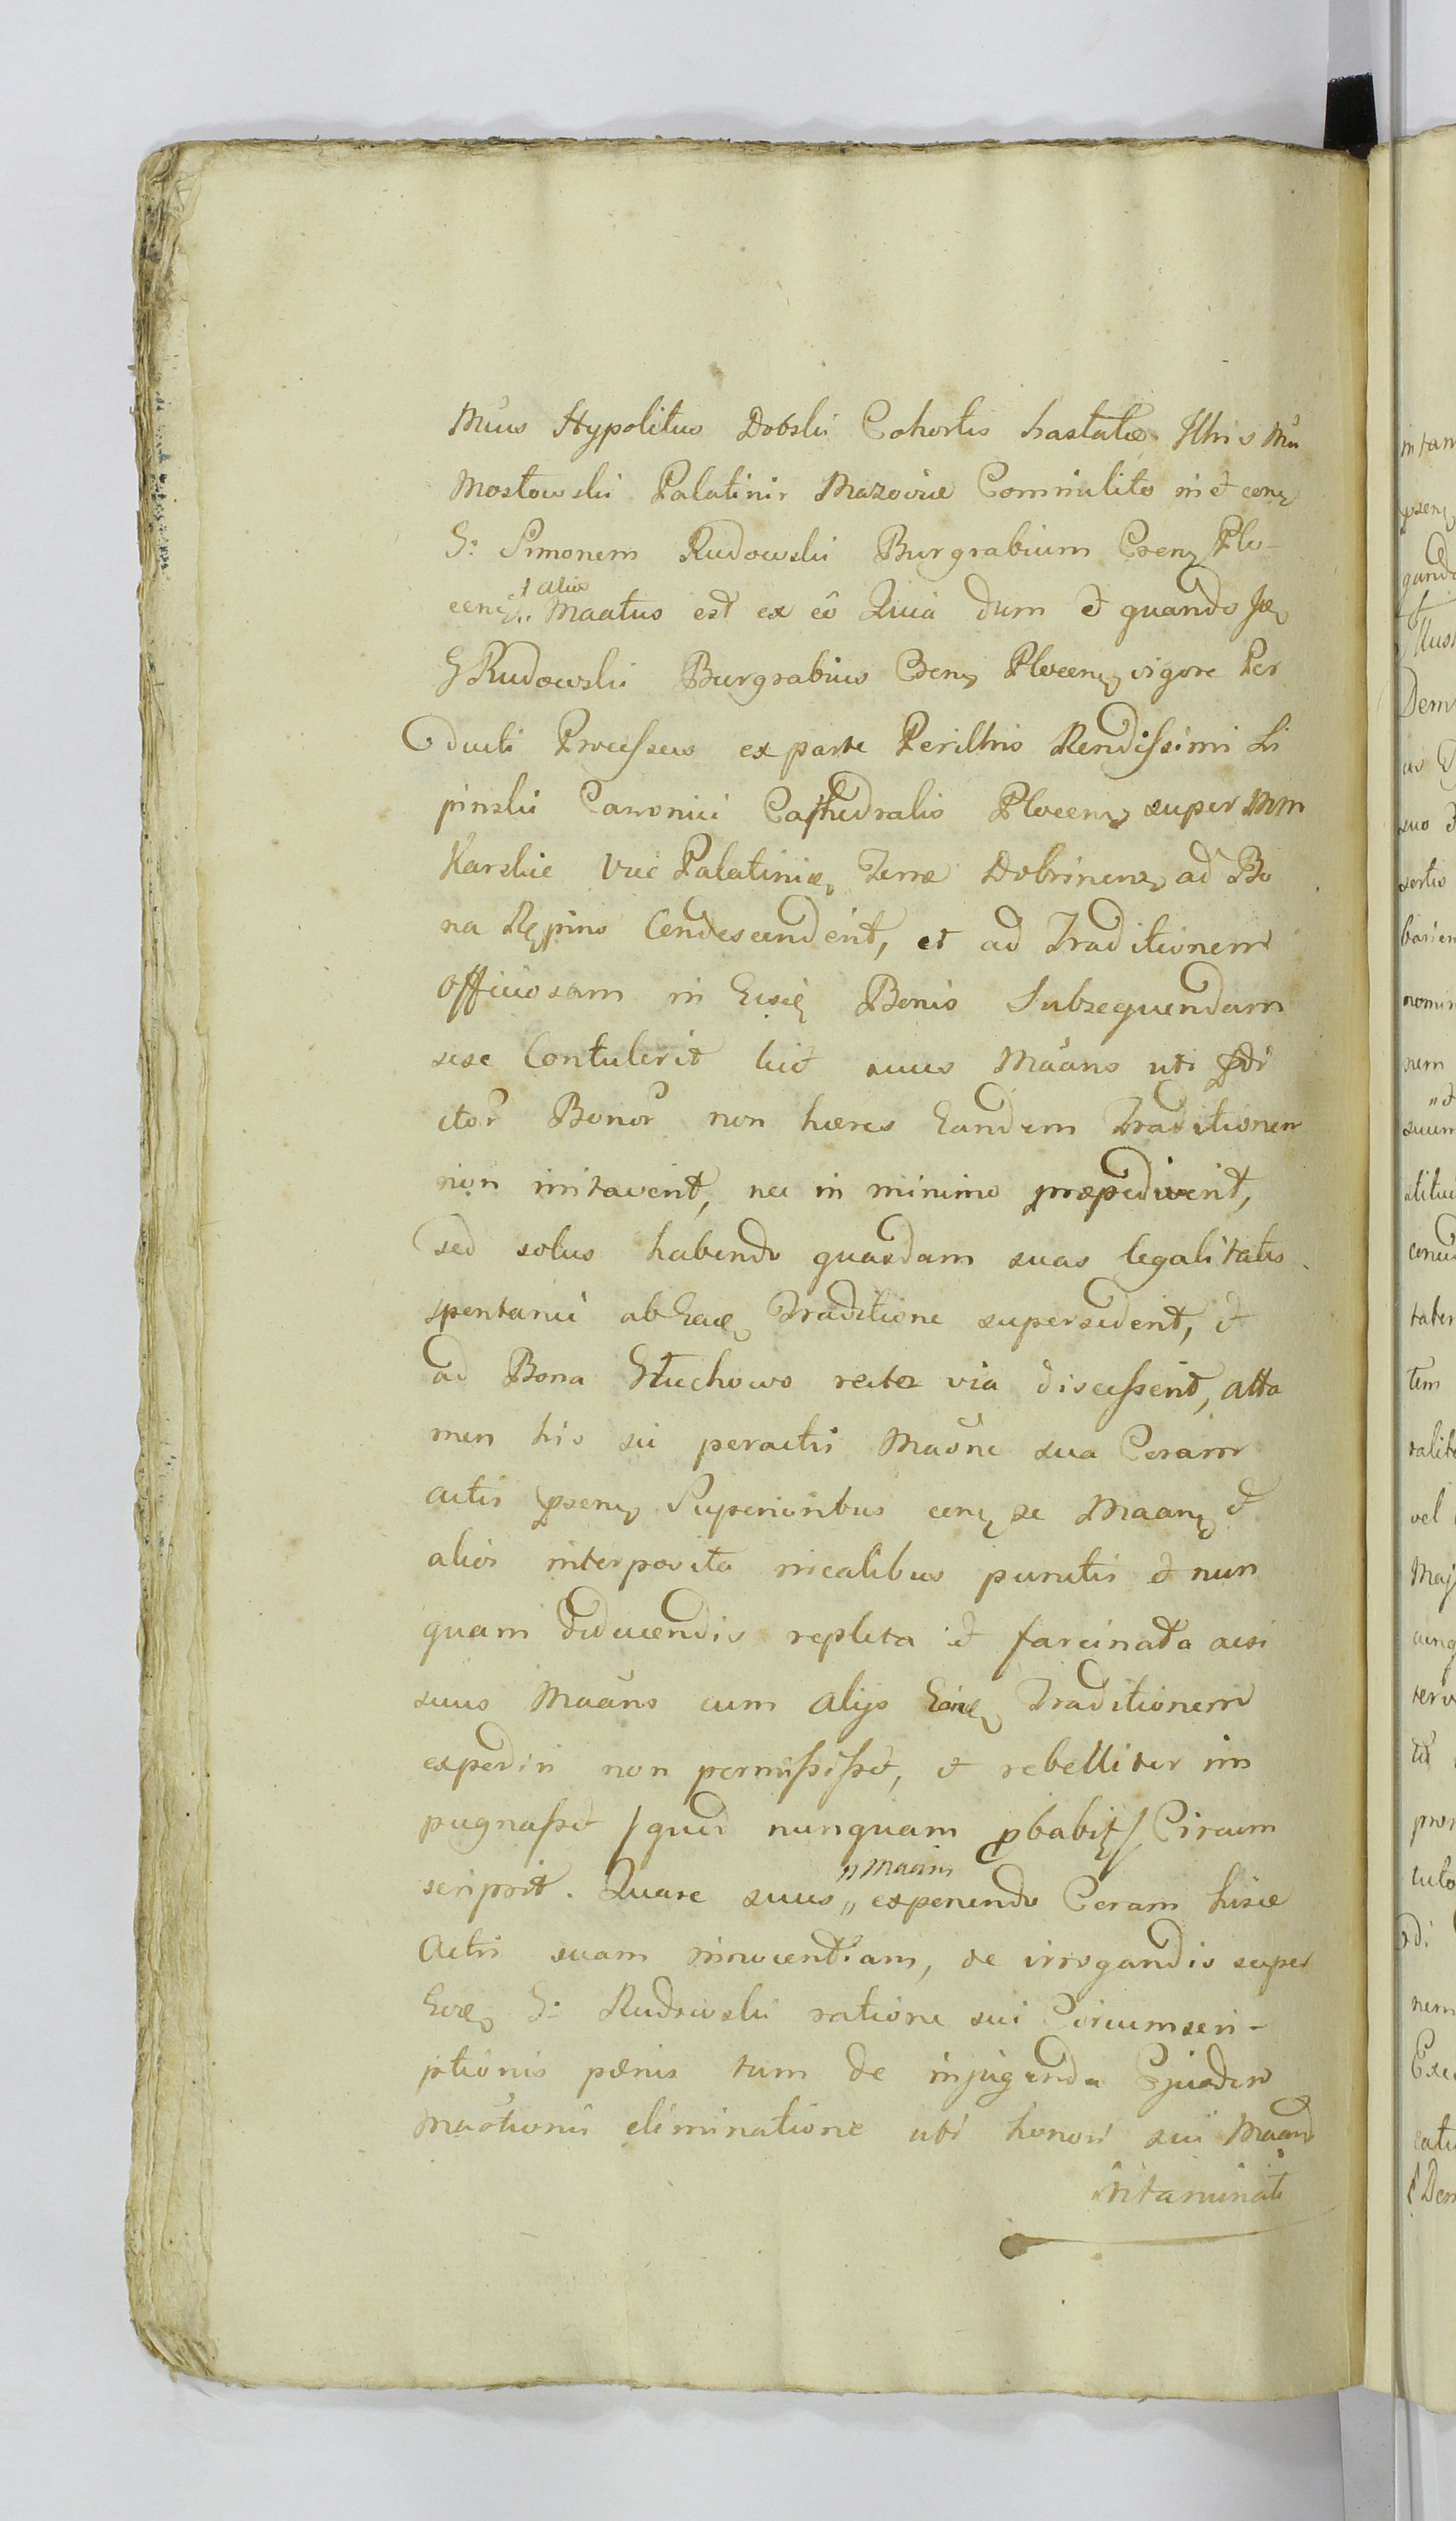 Mūus Hypolitus Dobski Cohortis hastatæ Illris Mū
Mostowski Palatini Mazoviæ Commilito in et conę
G: Simonem Rudowski Burgrabium Crenę Plo-
cenę „ et alios
Maãtus est ex eô Quia dum et quando Idę
G Rudowski Burgrabius Crenę Plocenę vigore Per
ducti Processus ex parte Perillris Rendissimi Li
pinski Canonici Cathedralis Plocenę super Mm
Karskie Vice Palatinię Terræ Dobrinenę ad Bo
na Rępino Condescenderit, et ad Traditionem
Officiosam in Eisdę Bonis Subsequendam
sese Contulerit licet suus Maãns uti
itor Bonor non hæres Eandem Traditionem
non irritaverit, nec in minimo præpediverit,
sed solus habendo quasdam suas legalitates
spontanie ab Eadę Traditione supersederit, et
ad Bona Głuchowo recta via discesserit, atta
men his sic peractis Maõne sua Coram
actis psenę Superioribus conę se Maanę et
alios interposita mealibus punctis et nun
quam deducendis repleta et farcinata acsi
suus Maãns cum alijs Eandę Traditionem
expediri non permisisset, et rebelliter im
pugnasset /quod nunquam pbabit/ Circum
scripsit. Quare suus „ Maans exponendo Coram hisce
Actis suam innocentiam, de irrogandis super
Eodę G: Rudowski ratione sui Circumscri-
ptionis pænis tum de injugenda Ejusdem
Maõtionis eliminatione uti honori sui Maand
intaminati